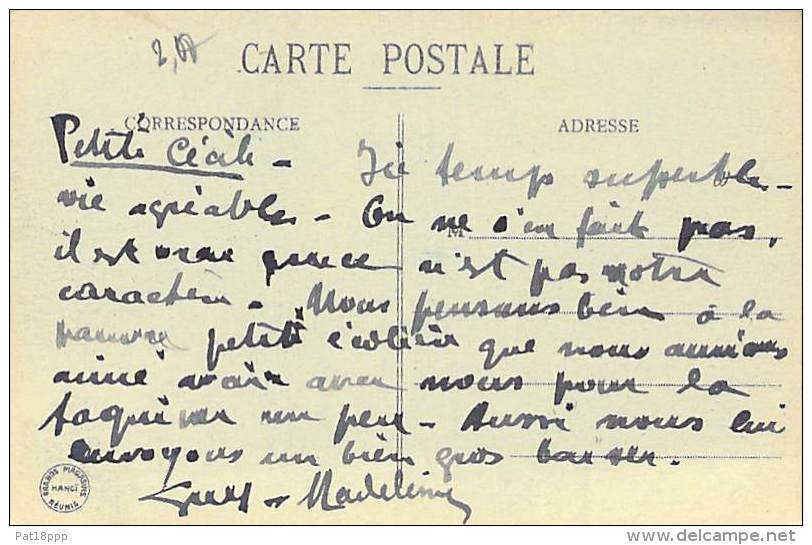 2,00
CARTE POSTALE
CORRESPONDANCE
ADRESSE
Petite Cécile - Ici temps superbe -
vie agréable - On ne s'en fait pas,
M
il est vrai que ce n'est pas notre
caractère - Nous pensons bien à la
pauvre petite écolière que nous aurions
aimé avoir avec nous pour la
taquiner un peu - Aussi nous lui
envoyons un bien gros baiser.
Madeleine
GRANDS MAGASINS RÉUNIS
NANCI
Pat18ppp
delcampe.net